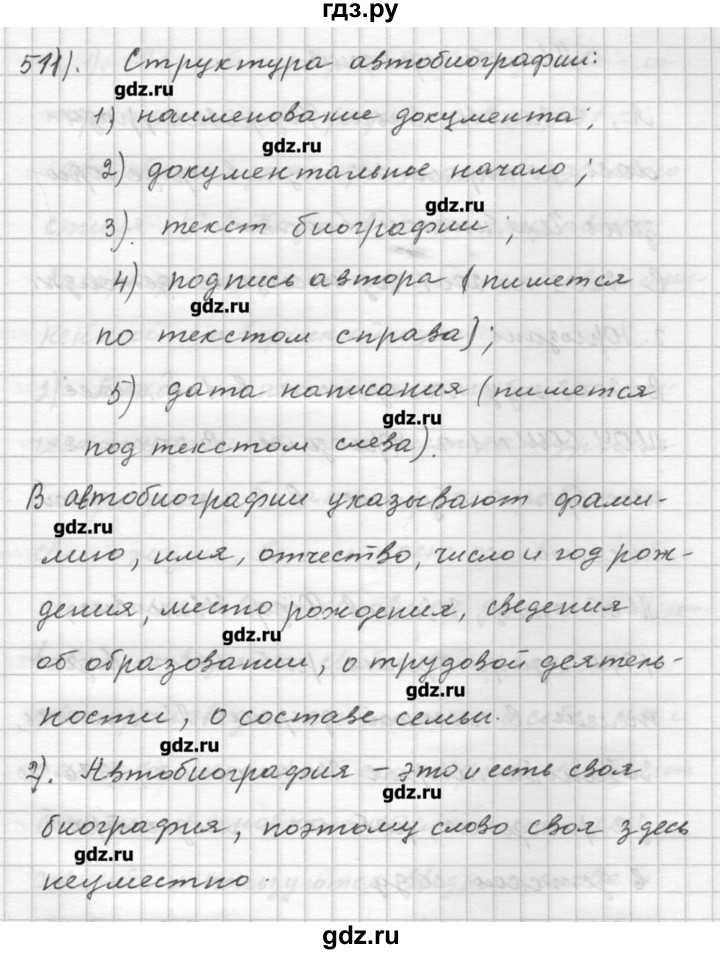 гдз.ру
511). Структура автобиографии:
gdz.ru
1) наименование документа;
gdz.ru
2) документальное начало;
gdz.ru
3). текст биографии;
4) подпись автора (пишется
gdz.ru
по текстом справа);
5) дата написания (пишется
gdz.ru
под текстом слева).
В автобиографии указывают фами-
gdz.ru
лию, имя, отчество, число и год рож-
дения, место рождения, сведения
gdz.ru
об образовании, о трудовой деятель-
gdz.ru
ности, о составе семьи.
gdz.ru
2). Автобиография – это и есть своя
gdz.ru
биография, поэтому слово своя здесь
gdz.ru
неуместно.
gdz.ru